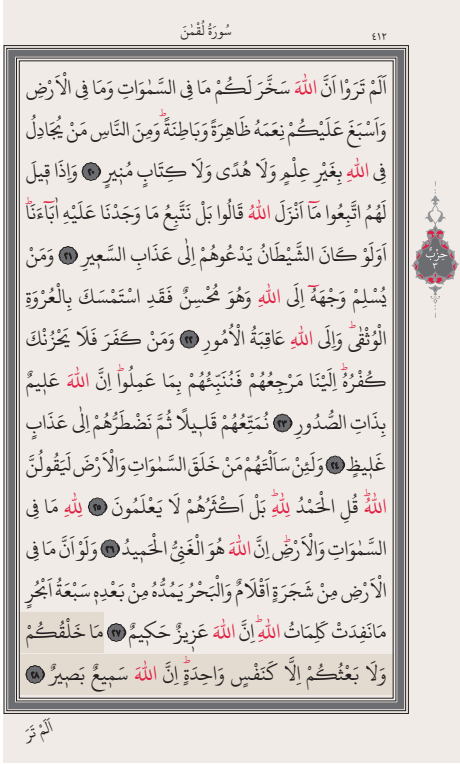 سُورَةُ لُقْمٰنَ
٤١٢
اَلَمْ تَرَوْا اَنَّ اللّٰهَ سَخَّرَ لَكُمْ مَا فِى السَّمٰوَاتِ وَمَا فِى الْاَرْضِ
وَاَسْبَغَ عَلَيْكُمْ نِعَمَهُ ظَاهِرَةً وَبَاطِنَةًۜ وَمِنَ النَّاسِ مَنْ يُجَادِلُ
فِى اللّٰهِ بِغَيْرِ عِلْمٍ وَلَا هُدًى وَلَا كِتَابٍ مُنٖيرٍ ٢٠ وَاِذَا قٖيلَ
لَهُمُ اتَّبِعُوا مَٓا اَنْزَلَ اللّٰهُ قَالُوا بَلْ نَتَّبِعُ مَا وَجَدْنَا عَلَيْهِ اٰبَٓاءَنَاۜ
اَوَلَوْ كَانَ الشَّيْطَانُ يَدْعُوهُمْ اِلٰى عَذَابِ السَّعٖيرِ ٢١ وَمَنْ
يُسْلِمْ وَجْهَهُٓ اِلَى اللّٰهِ وَهُوَ مُحْسِنٌ فَقَدِ اسْتَمْسَكَ بِالْعُرْوَةِ
الْوُثْقٰىۜ وَاِلَى اللّٰهِ عَاقِبَةُ الْاُمُورِ ٢٢ وَمَنْ كَفَرَ فَلَا يَحْزُنْكَ
كُفْرُهُۜ اِلَيْنَا مَرْجِعُهُمْ فَنُنَبِّئُهُمْ بِمَا عَمِلُواۜ اِنَّ اللّٰهَ عَلٖيمٌ
بِذَاتِ الصُّدُورِ ٢٣ نُمَتِّعُهُمْ قَلٖيلًا ثُمَّ نَضْطَرُّهُمْ اِلٰى عَذَابٍ
غَلٖيظٍ ٢٤ وَلَئِنْ سَاَلْتَهُمْ مَنْ خَلَقَ السَّمٰوَاتِ وَالْاَرْضَ لَيَقُولُنَّ
اللّٰهُۜ قُلِ الْحَمْدُ لِلّٰهِۜ بَلْ اَكْثَرُهُمْ لَا يَعْلَمُونَ ٢٥ لِلّٰهِ مَا فِى
السَّمٰوَاتِ وَالْاَرْضِۜ اِنَّ اللّٰهَ هُوَ الْغَنِىُّ الْحَمٖيدُ ٢٦ وَلَوْ اَنَّ مَا فِى
الْاَرْضِ مِنْ شَجَرَةٍ اَقْلَامٌ وَالْبَحْرُ يَمُدُّهُ مِنْ بَعْدِهٖ سَبْعَةُ اَبْحُرٍ
مَا نَفِدَتْ كَلِمَاتُ اللّٰهِۜ اِنَّ اللّٰهَ عَزٖيزٌ حَكٖيمٌ ٢٧ مَا خَلْقُكُمْ
وَلَا بَعْثُكُمْ اِلَّا كَنَفْسٍ وَاحِدَةٍۜ اِنَّ اللّٰهَ سَمٖيعٌ بَصٖيرٌ ٢٨
حِزْبْ
اَلَمْ تَرَ